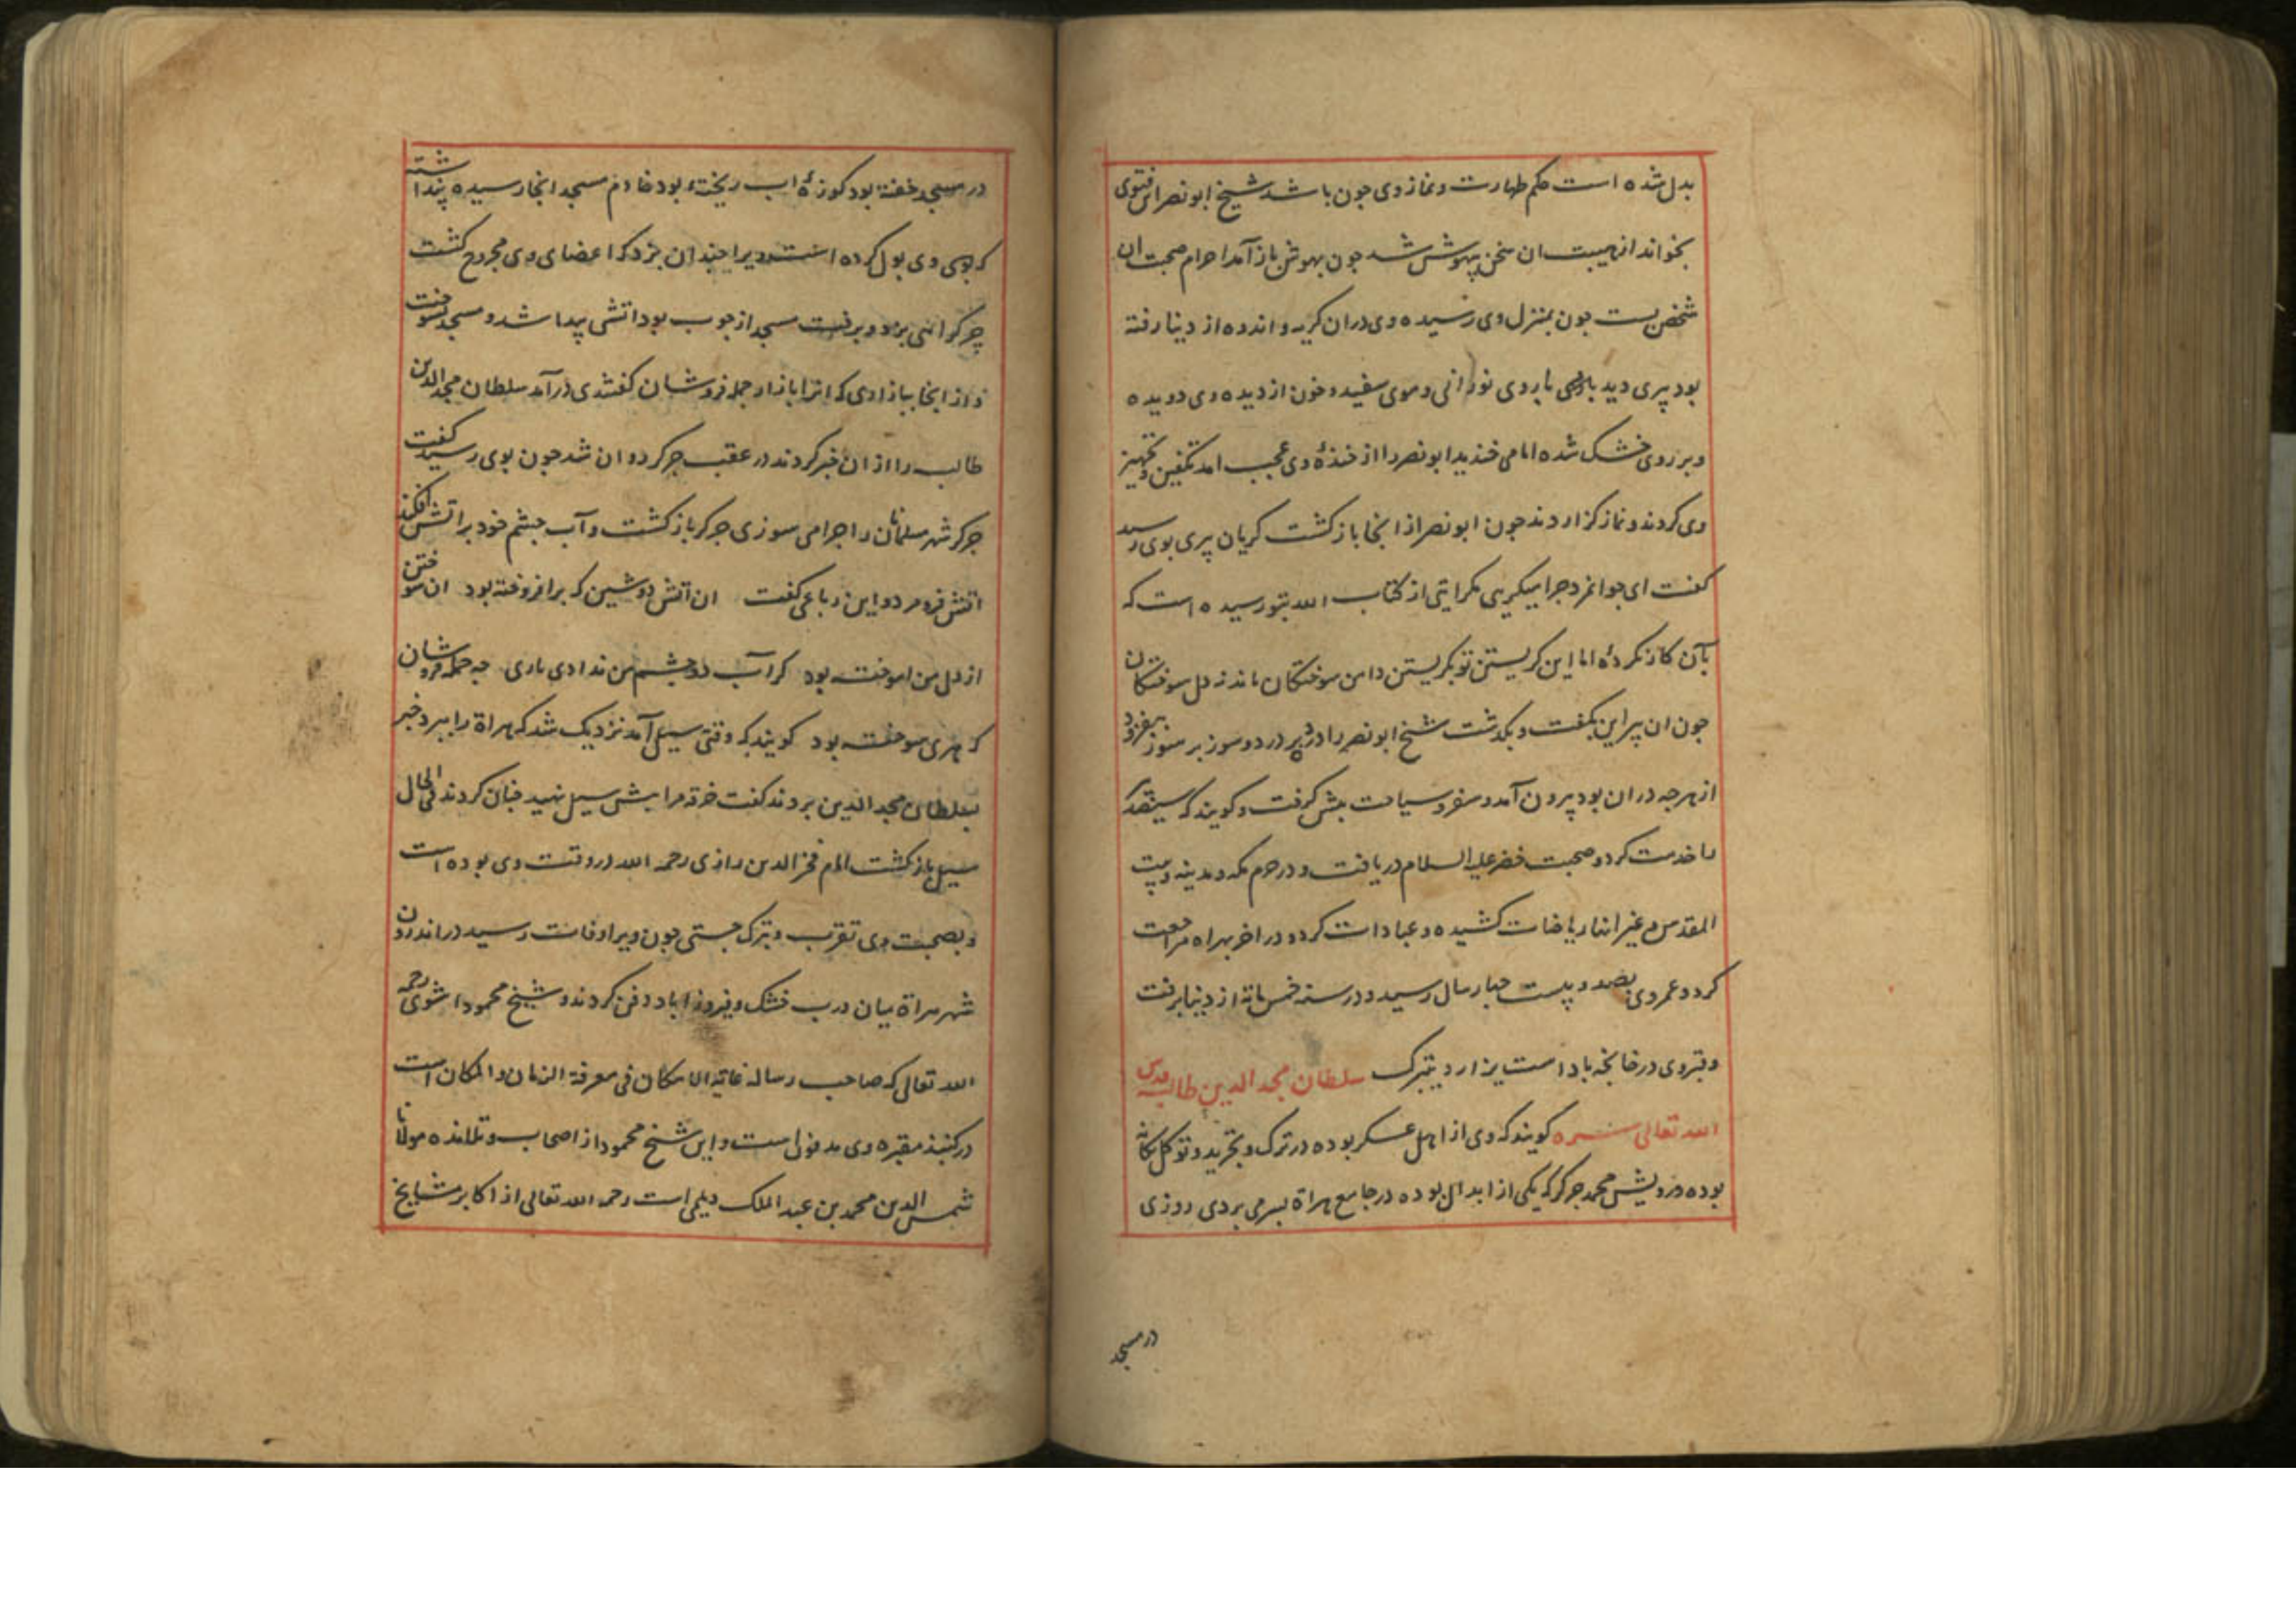 بدل شده است حکم طهارت و نماز وی جون باشد شیخ ابونصر ان فتوی
بخواند از هیبت ان سخن بیهوش شد جون بهوش باز آمد احرام صحبت ان
شخص بست جون بمنزل وی رسیده وی دران کریه و اندوه از دنیا رفته
بود پیری دید با روی نورانی و موی سفید و خون از دیده وی دویده
و بر روی خشک شده اما می خندید ابونصر را از خندهٔ وی عجب امد تکفین و تجهیز
وی کردند و نماز کزاردند جون ابونصر از انجا بازکشت کریان پیری بوی رسید
کفت ای جوانمرد جرا میکریی مکر ایتی از کتاب الله بتو رسیده است که
بآن کار نکردهٔ اما این کریستن تو بکریستن دامن سوختکان ماند نه دل سوختکان
جون ان پیر این بکفت و بکذشت شیخ ابونصر را درد بر درد و سوز بر سوز بیفزود
از هرجه دران بود بیرون آمد و سفر و سیاحت پیش کرفت و کویند که سیصد پیر
را خدمت کرد و صحبت خضر علیه السلام دریافت و در حرم مکه و مدینه و بیت
المقدس و غیر انها ریاضات کشیده و عبادات کرد و در اخر بهراه مراجعت
کرد و عمر وی بصد و بیست جهار سال رسید و در سنه خمسمائة از دنیا برفت
و قبر وی در خانجه باد است یزار و یتبرک سلطان مجد الدین طالبه قدس
الله تعالی سره کویند که وی از اهل عسکر بوده در ترک و تجرید و توکل یکانه
بوده درویش محمد جرکر که یکی از ابدال بوده در جامع هراة بسر می بردی روزی
در مسجد
در مسجد خفته بود کوزهٔ اب ریخته بود خادم مسجد انجا رسیده پنداشته
که وی بول کرده است ویرا جندان بزد که اعضای وی مجروح کشت
جرکر اهی بزد و برفت مسجد از جوب بود اتشی پیدا شد و مسجد بسوخت
و از انجا ببازاری که انرا بازار جمله فروشان کفتندی درآمد سلطان مجد الدین
طالب را از ان خبر کردند در عقب جرکر دوان شد جون بوی رسید کفت
جرکر شهر مسلمانان را جرا می سوزی جرکر بازکشت و آب جشم خود بر اتش افکند
اتش فرو مرد و این رباعی کفت ان اتش دوشین که برافروخته بود ان سوختن
از دل من اموخته بود کر آب دو جشم من ندادی یاری جه جمله فروشان
که هری سوخته بود کویند که وقتی سیل آمد نزدیک شد که هراة را ببرد خبر
بسلطان مجد الدین بردند کفت خرقه مرا پیش سیل نهید جنان کردند فی الحال
سیل بازکشت امام فخر الدین رازی رحمه الله در وقت وی بوده است
و بصحبت وی تقرب و تبرک جستی جون ویرا وفات رسید در اندرون
شهر هراة میان درب خشک و فیروزاباد دفن کردند و شیخ محمود اشنوی رحمه
الله تعالی که صاحب رساله غایة الامکان فی معرفة الزمان و المکان است
در کنبذ مقبره وی مدفون است و این شیخ محمود از اصحاب و تلامذه مولانا
شمس الدین محمد بن عبد الملک دیلمی است رحمه الله تعالی از اکابر مشایخ